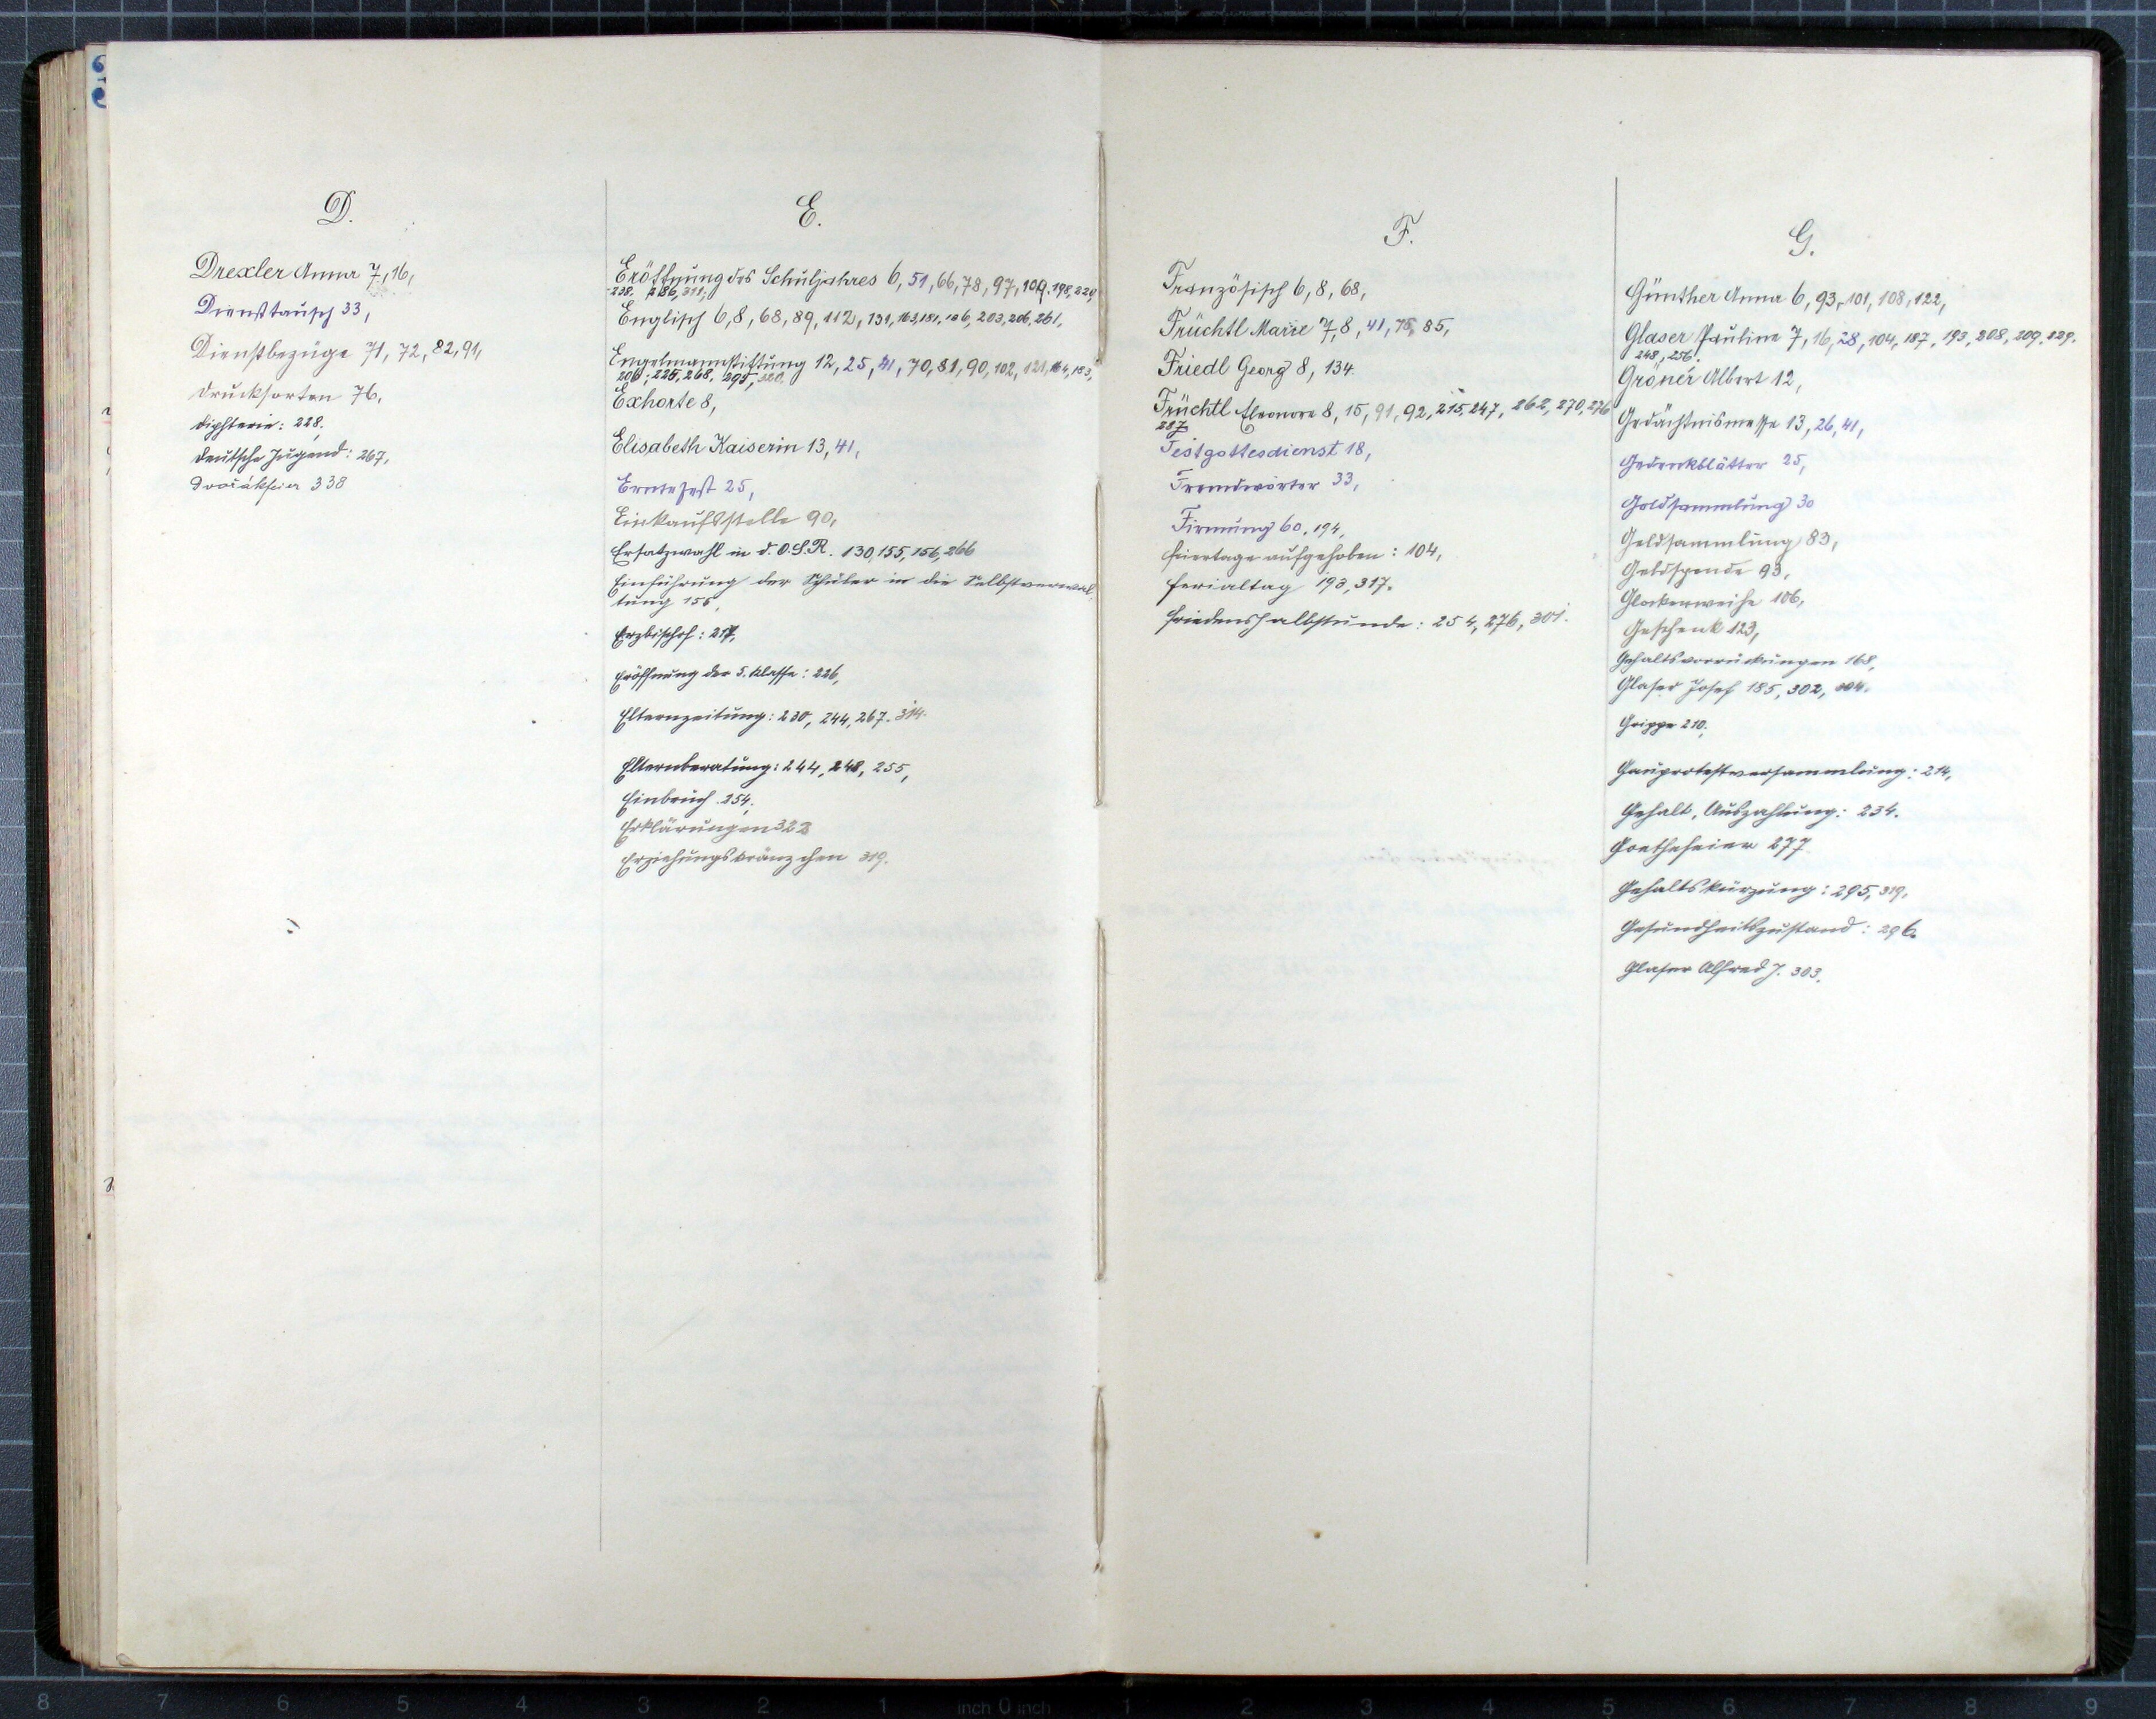 D.
Drexler Anna 7, 16,
Diensttausch 33,
Dienstbezüge 71, 72, 82, 91,
Drucksorten 76,
Diphterie: 228.
Deutsche Jugend: 267,
Dvořákfeier 338
E.
Eröffnung des Schuljahres 6, 51, 66, 78, 97, 109, 198, 229,
238, 286, 311,
Englisch 6, 8, 68, 89, 112, 131, 163, 181, 186, 203, 206, 261,
Engelmannstiftung 12, 25, 41, 70, 81, 90, 102, 121, 164, 183,
206, 225, 268, 295, 320.
Exhorte 8,
Elisabeth Kaiserin 13, 41,
Erntefest 25,
Einkaufsstelle 90,
Ersatzwahl in d. O.S.R. 130, 155, 156, 266
Einführung der Schüler in die Selbstverwal-
tung 155,
Erzbischof: 217,
Eröffnung der 5. Klasse: 226,
Elternzeitung: 230, 244, 267. 314.
Elternberatung: 244, 248, 255,
Einbruch 254.
Erklärungen 322
Erziehungskränzchen 319.
F.
Französisch 6, 8, 68,
Früchtl Marie 7, 8, 41, 75, 85,
Friedl Georg 8, 134.
Früchtl Eleonore 8, 15, 91, 92, 215, 247, 262, 270, 276
287
Festgottesdienst 18,
Fremdwörter 33,
Firmung 60, 194,
Feiertage aufgehoben: 104,
Ferialtag 193, 317.
Friedenshalbstunde: 254, 276, 301.
G.
Günther Anna 6, 93, 101, 108, 122,
Glaser Pauline 7, 16, 28, 104, 187, 193, 208, 209, 229,
248, 256.
Gröner Albert 12,
Gedächtnismesse 13, 26, 41,
Gedenkblätter 25,
Goldsammlung 30
Geldsammlung 83,
Geldspende 93,
Glockenweihe 106,
Geschenk 123,
Gehaltsvorrückungen 168,
Glaser Josef 185, 302, 304.
Grippe 210.
Gauprotestversammlung: 214,
Gehalt, Auszahlung: 234.
Goethefeier 277
Gehaltskürzung: 295, 319,
Gesundheitszustand: 296.
Glaser Alfred J. 303.
8 7 6 5 4 3 2 1 inch 0 inch 1 2 3 4 5 6 7 8 9